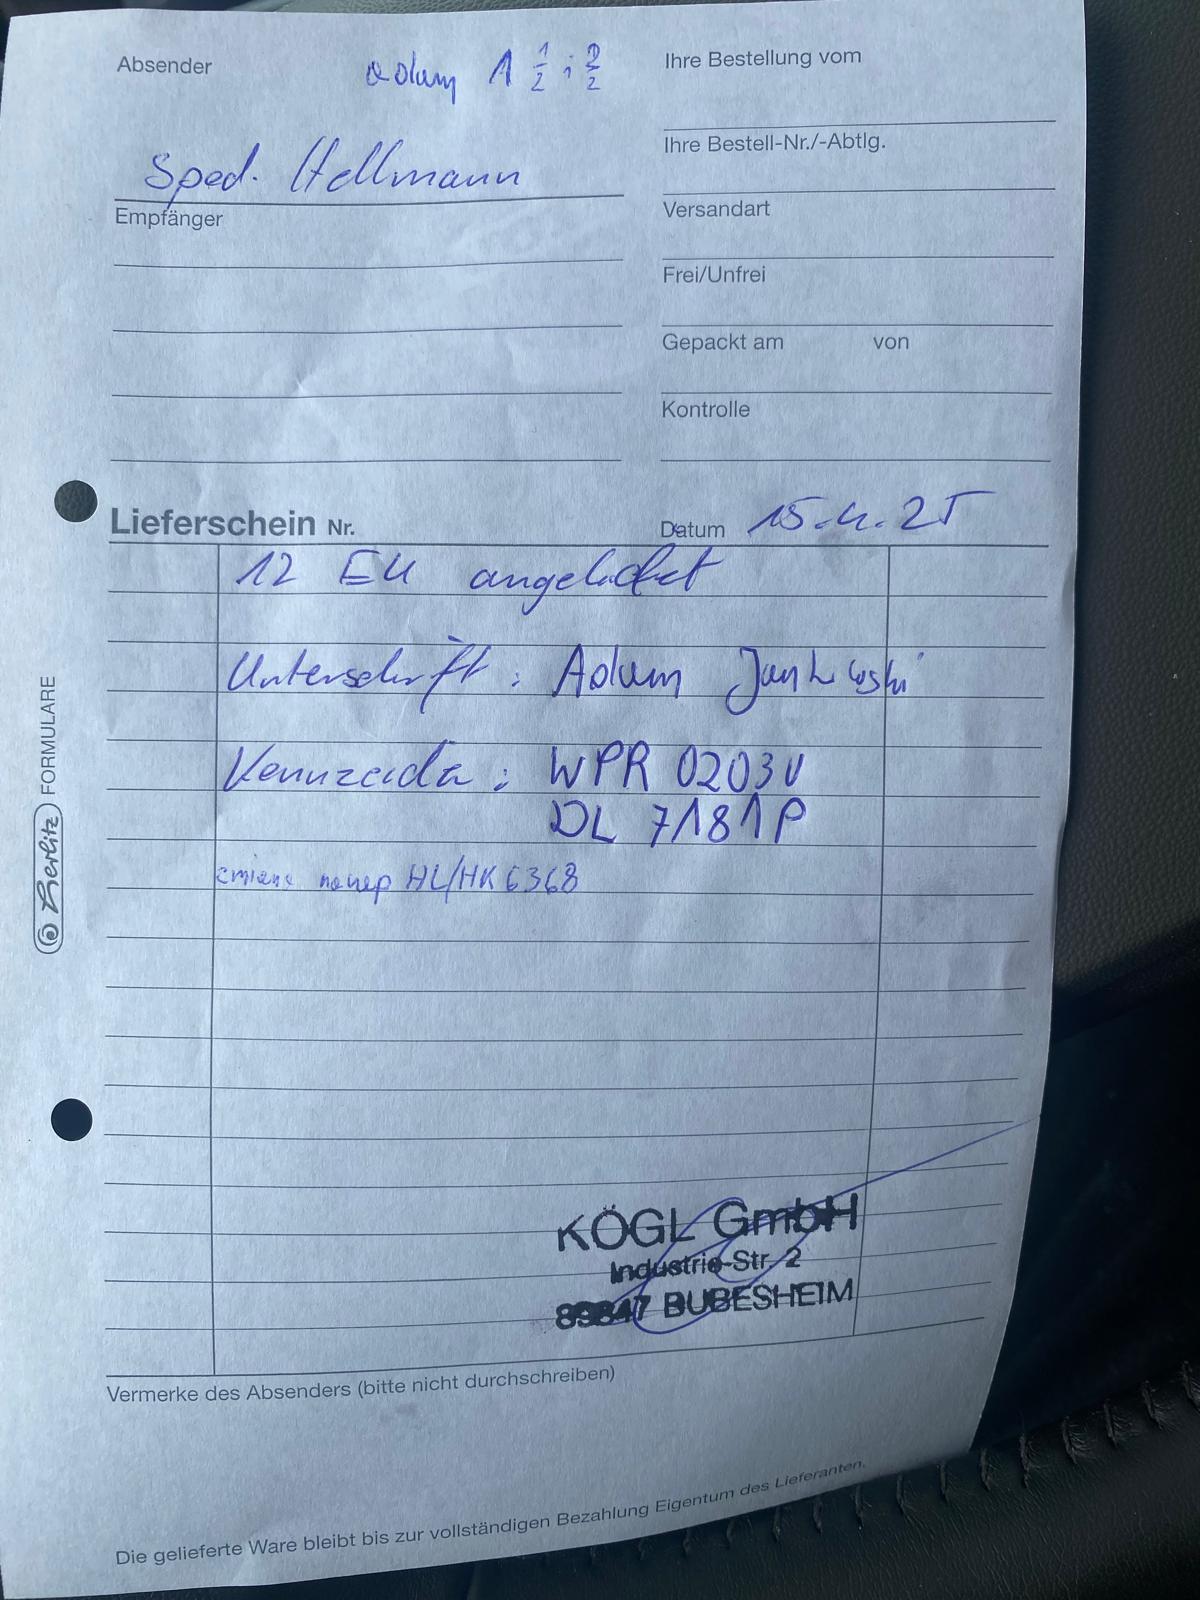 Absender
Adam 1 1/2 i 2/2
Ihre Bestellung vom
Sped. Hellmann
Ihre Bestell-Nr./-Abtlg.
Empfänger
Versandart
Frei/Unfrei
Gepackt am von
Kontrolle
Lieferschein Nr.
Datum 15.4.25
12 EU
Unterschrift : Adam Jankowski
: WPR 0203V
DL 7181P
HL/HK 6368
Berlitz FORMULARE
KÖGL GmbH
Industrie-Str. 2
89347 BUBESHEIM
Vermerke des Absenders (bitte nicht durchschreiben)
Die gelieferte Ware bleibt bis zur vollständigen Bezahlung Eigentum des Lieferanten.